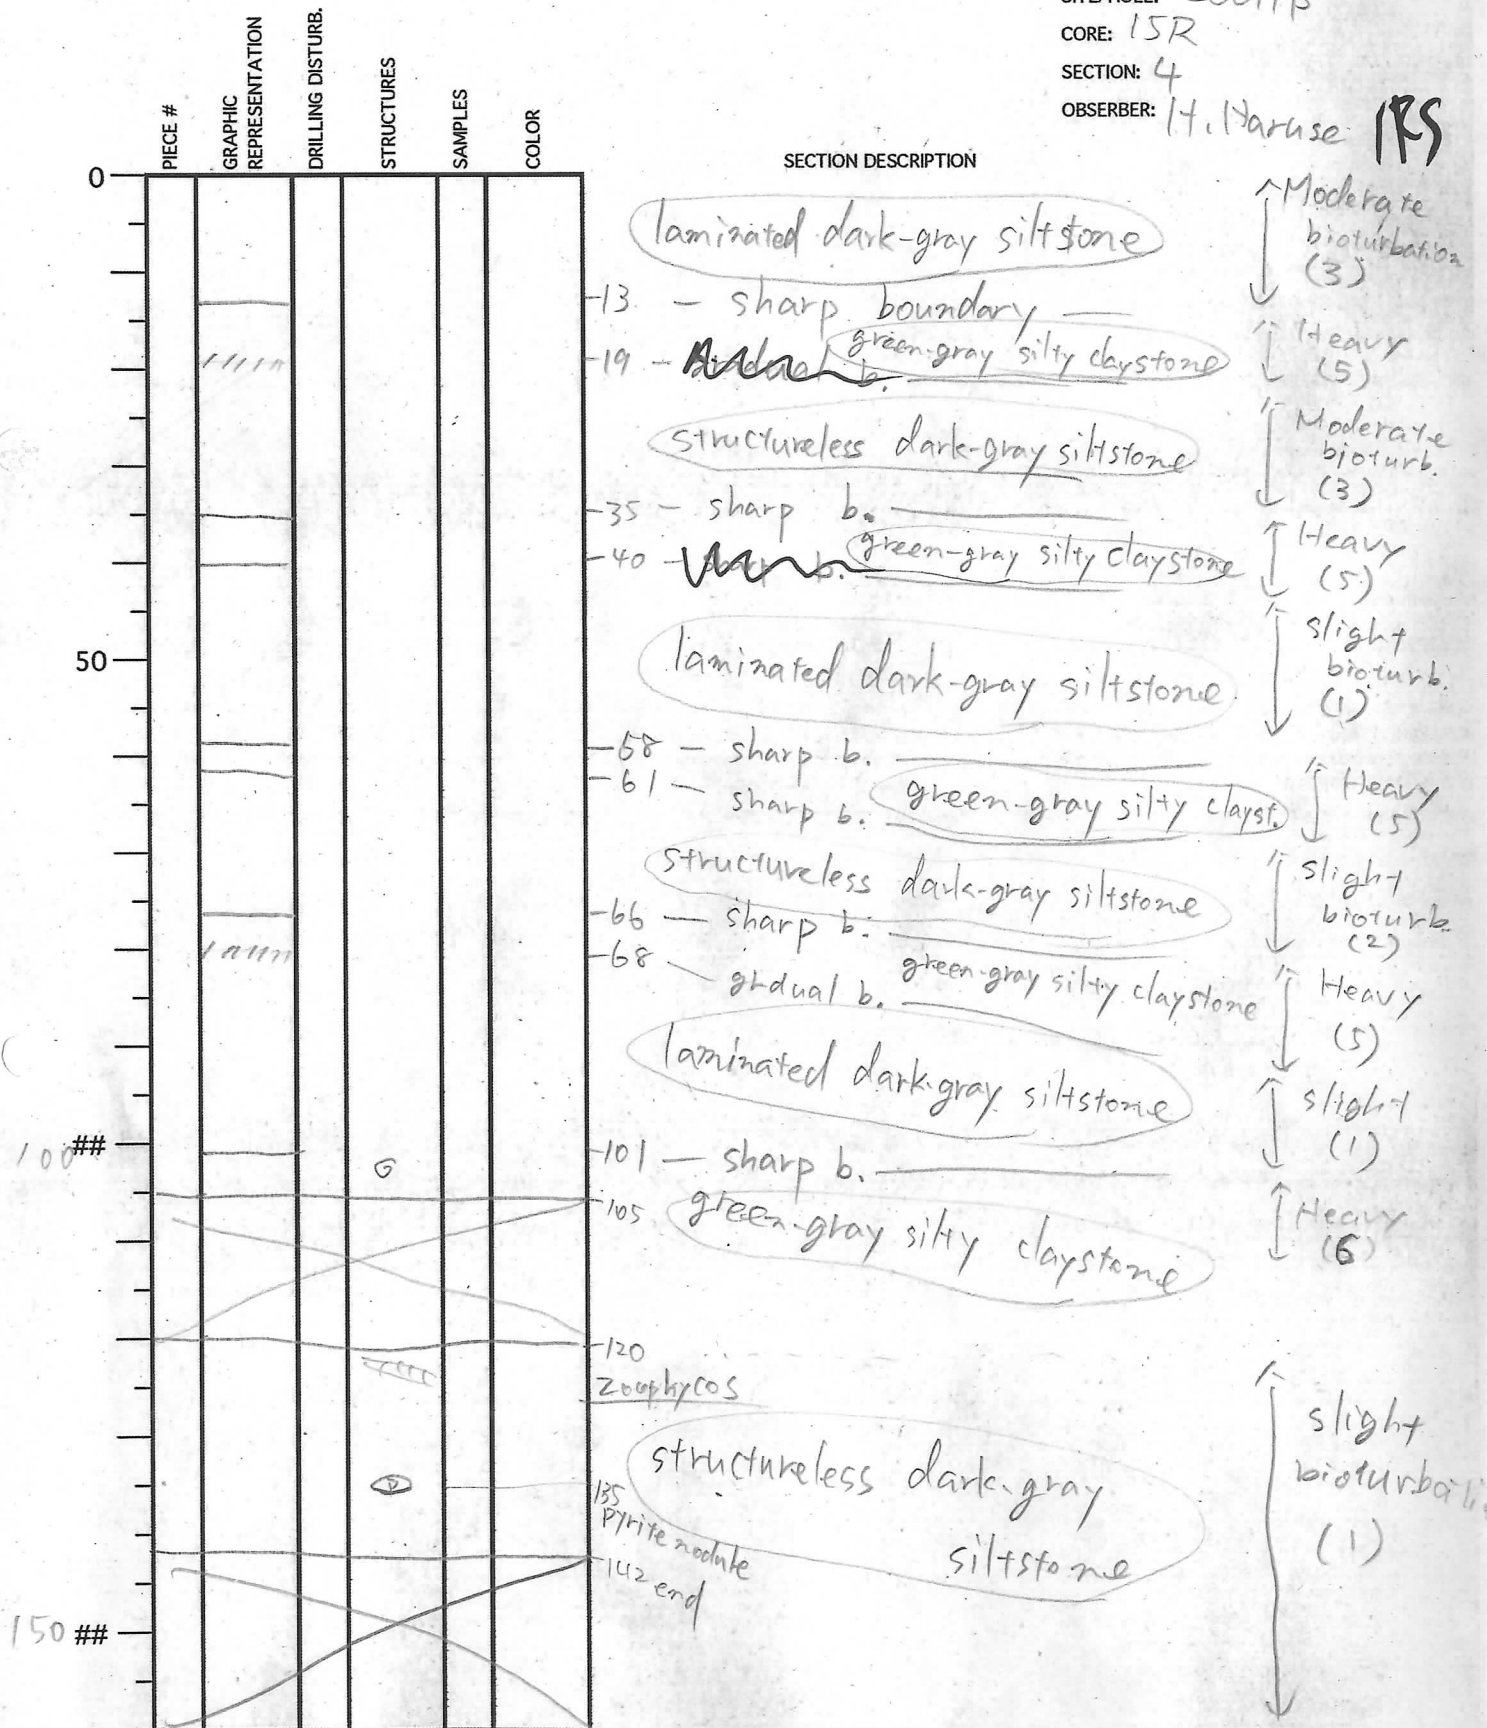 CORE: 15R
SECTION: 4
OBSERBER: H. Naruse
PIECE #
GRAPHIC REPRESENTATION
DRILLING DISTURB.
STRUCTURES
SAMPLES
COLOR
SECTION DESCRIPTION
0
laminated dark-gray siltstone
Moderate
bioturbation
(3)
13 — sharp boundary —
19 — green-gray silty claystone
b.
Heavy
(5)
structureless dark-gray siltstone
Moderate
bioturb.
(3)
35 — sharp b.
40 — b. green-gray silty claystone
Heavy
(5)
50
laminated dark-gray siltstone
slight
bioturb.
(1)
58 — sharp b.
61 — sharp b. green-gray silty clayst.
Heavy
(5)
structureless dark-gray siltstone
slight
bioturb.
(2)
66 — sharp b.
68 — grdual b. green-gray silty claystone
Heavy
(5)
laminated dark-gray siltstone
slight
(1)
100 ##
101 — sharp b.
105
green-gray silty claystone
Heavy
(6)
120
Zoophycos
structureless dark-gray
siltstone
slight
bioturbation
(1)
135
pyrite nodule
142 end
150 ##